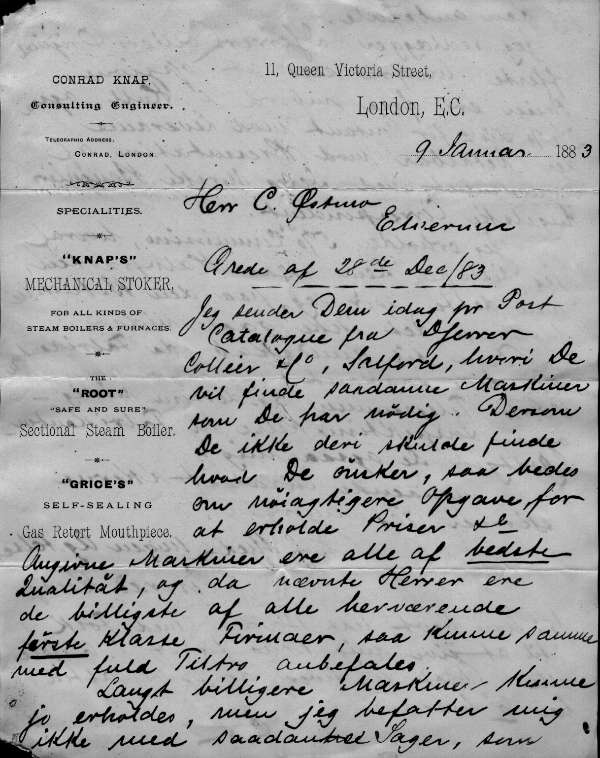 CONRAD KNAP,
Consulting Engineer.
TELEGRAPHIC ADDRESS,
CONRAD, LONDON.
SPECIALITIES.
"KNAP'S"
MECHANICAL STOKER,
FOR ALL KINDS OF
STEAM BOILERS & FURNACES.
THE
"ROOT"
"SAFE AND SURE"
Sectional Steam Boiler.
"GRICE'S"
SELF-SEALING
Gas Retort Mouthpiece.
11, Queen Victoria Street,
London, E.C.
9 Januar 1883
Herr C. Østmo
Elverum
Ærede af 28de Dec/83
Jeg sender Dem idag pr Post
Catalogue fra D'Herrer
Collier & Co, Salford, hvori De
vil finde saadanne Maskiner
som De har nödig. Dersom
De ikke deri skulde finde
hvad De önsker, saa bedes
om nöiagtigere Opgave for
at erholde Priser &c
Angivne Maskiner ere alle af bedste
Qualität, og da nævnte Herrer ere
de billigste af alle herværende
förste Klasse Firmaer, saa kunne samme
med fuld Tiltro anbefales.
Langt billigere Maskiner kunne
jo erholdes, men jeg befatter mig
ikke med saadanne Sager, som